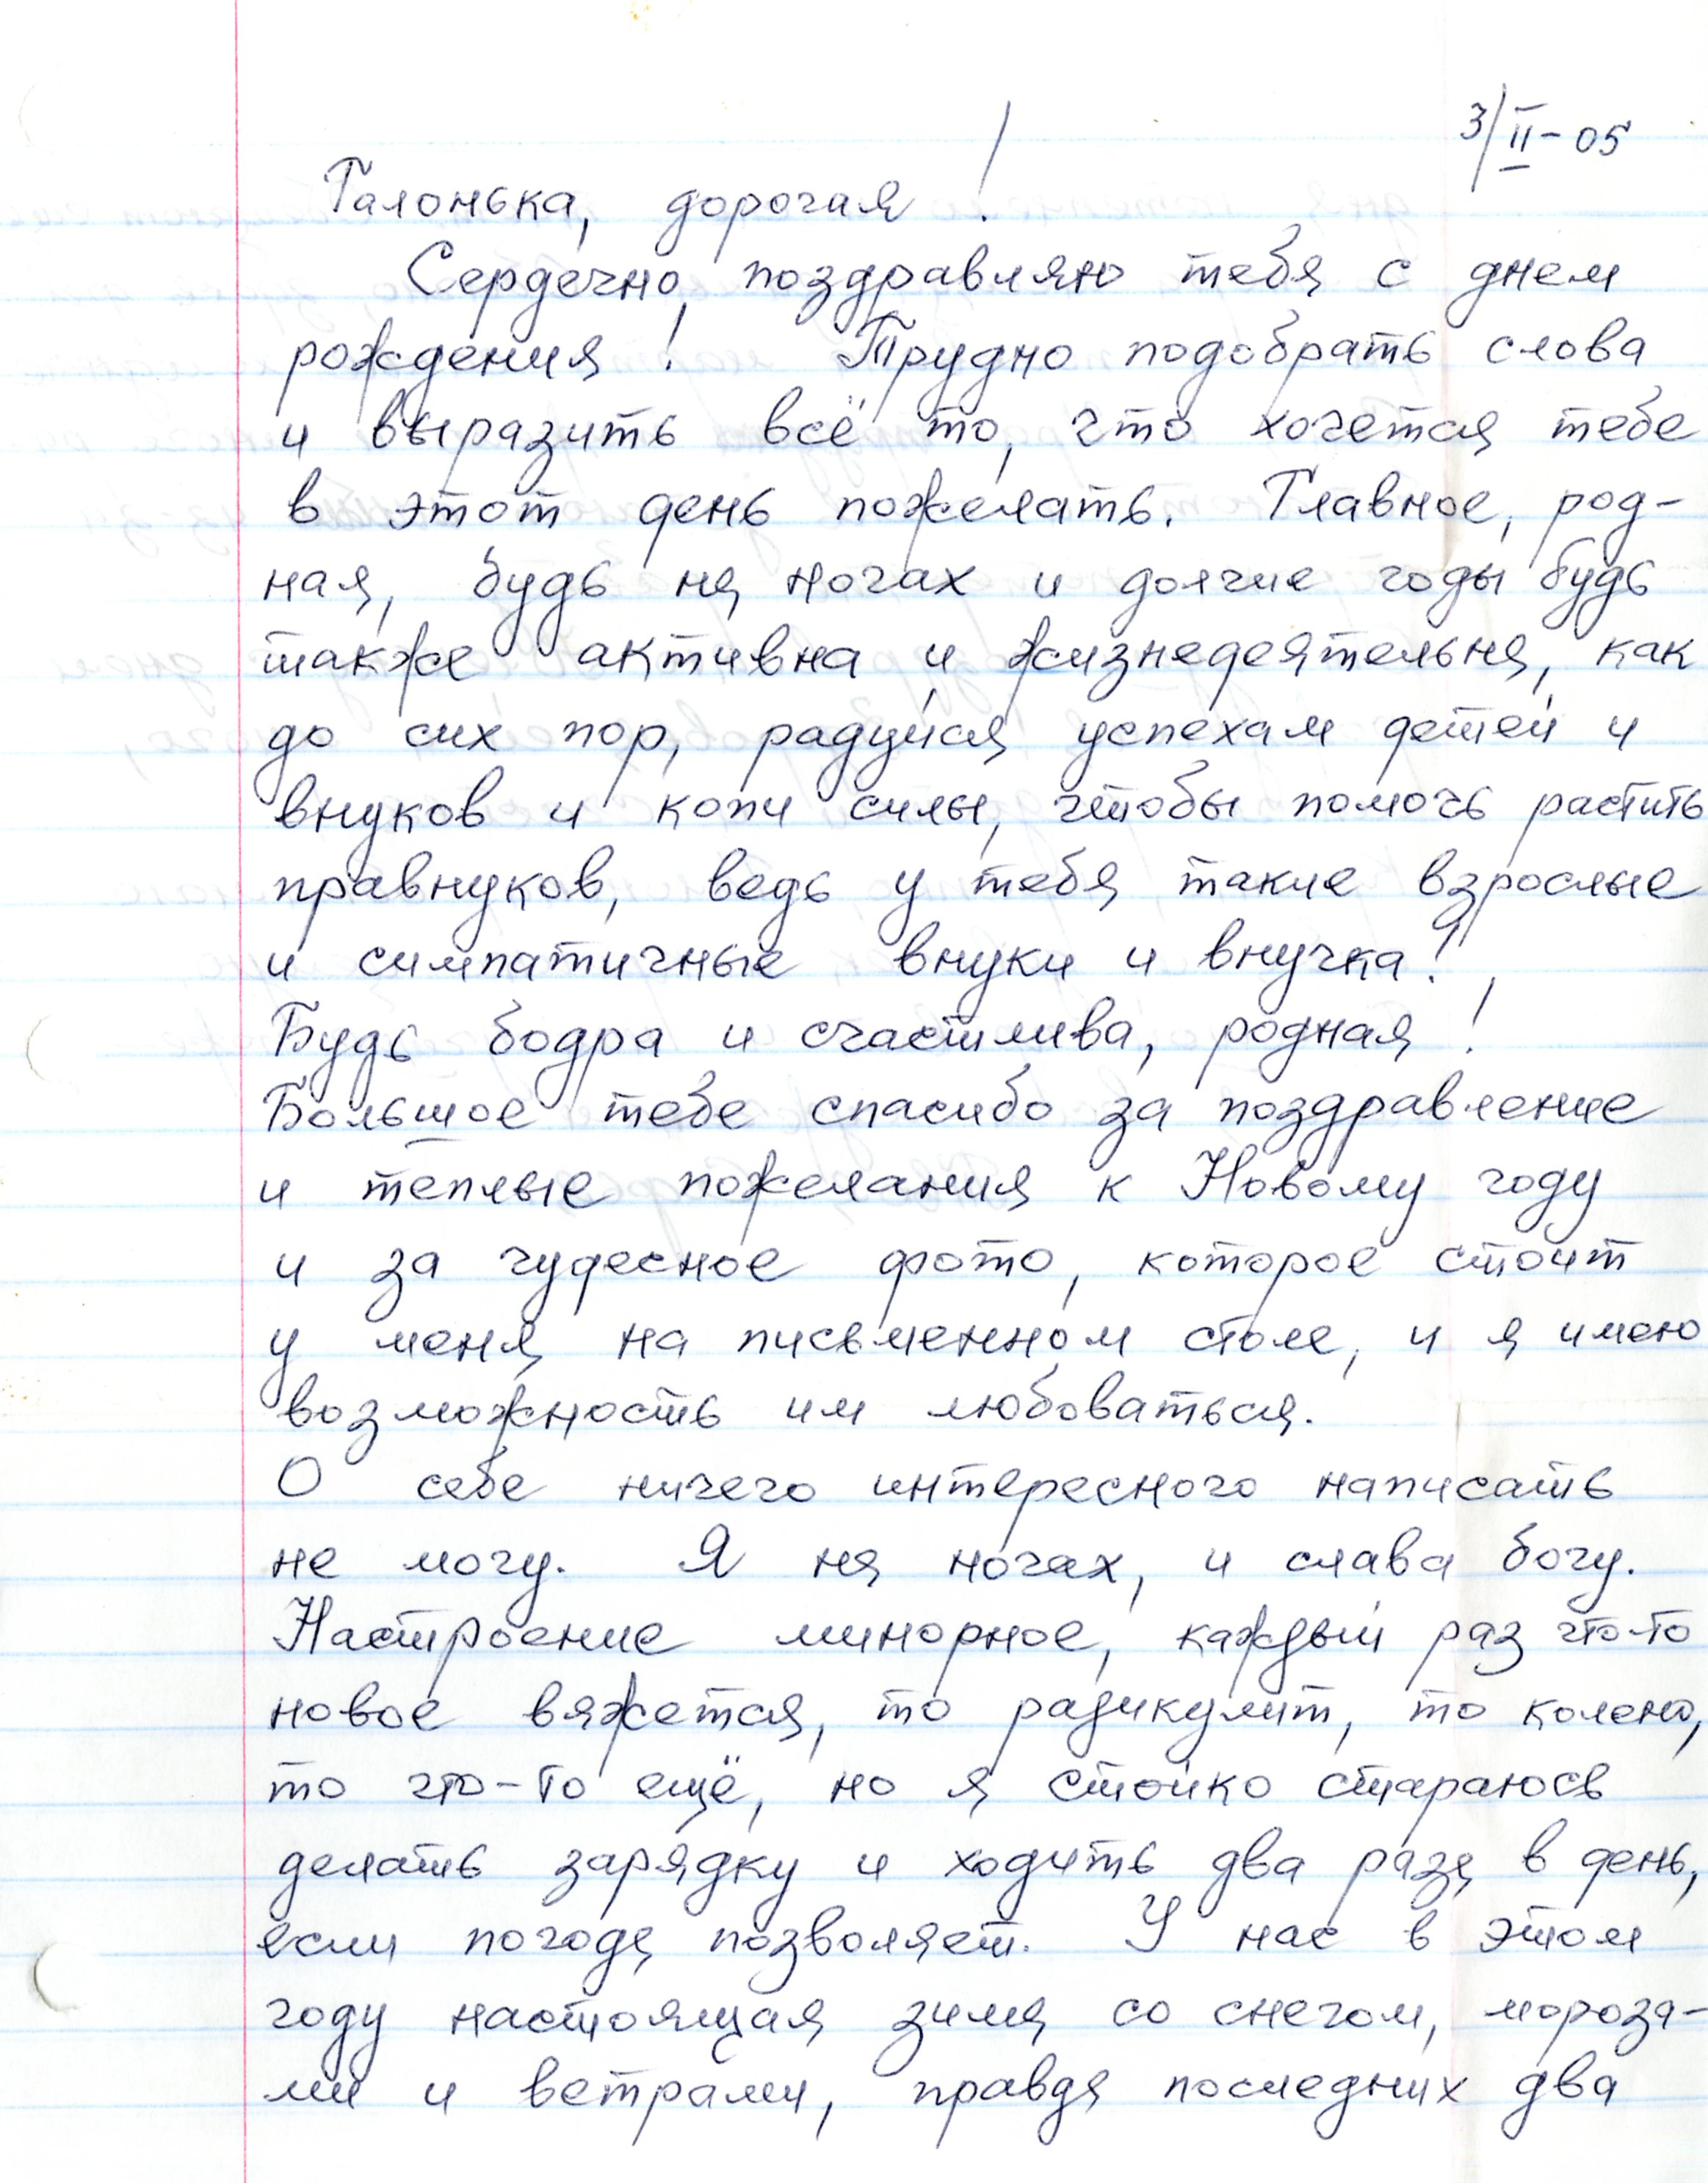 3/II-05
Галонька, дорогая!
Сердечно поздравляю тебя с днем
рождения! Трудно подобрать слова
и выразить всё то, что хочется тебе
в этот день пожелать. Главное, род-
ная, будь на ногах и долгие годы будь
также активна и жизнедеятельна, как
до сих пор, радуйся успехам детей и
внуков и копи силы, чтобы помочь растить
правнуков, ведь у тебя такие взрослые
и симпатичные внуки и внучка!
Будь бодра и счастлива, родная!
Большое тебе спасибо за поздравление
и теплые пожелания к Новому году
и за чудесное фото, которое стоит
у меня на письменном столе, и я имею
возможность им любоваться.
О себе ничего интересного написать
не могу. Я на ногах, и слава богу.
Настроение минорное, каждый раз что-то
новое вяжется, то радикулит, то колено,
то что-то ещё, но я стойко стараюсь
делать зарядку и ходить два раза в день,
если погода позволяет. У нас в этом
году настоящая зима со снегом, мороза-
ми и ветрами, правда последних два